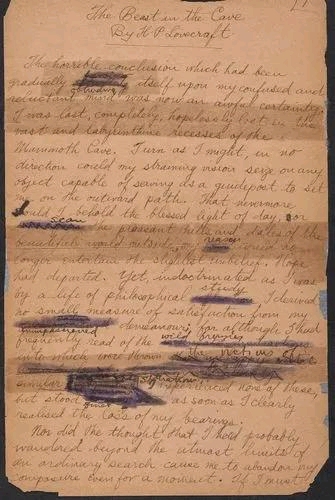 The Beast in the Cave
By H P Lovecraft
The horrible conclusion which had been
gradually obtruding itself upon my confused and
reluctant mind was now an awful certainty.
I was lost, completely, hopelessly lost in the
vast and labyrinthine recesses of the
Mammoth Cave. Turn as I might, in no
direction could my straining vision seize on any
object capable of serving as a guidepost to set
me on the outward path. That nevermore
should I behold the blessed light of day, or
scan the pleasant hills and dales of the
beautiful world outside, my reason could no
longer entertain the slightest unbelief. Hope
had departed. Yet, indoctrinated as I was
by a life of philosophical study I derived
no small measure of satisfaction from my
unimpassioned demeanour; for although I had
frequently read of the wild frenzies
into which were thrown the victims of
similar situations I experienced none of these,
but stood quiet as soon as I clearly
realised the loss of my bearings.
Nor did the thought that I had probably
wandered beyond the utmost limits of
an ordinary search cause me to abandon my
composure even for a moment. If I must